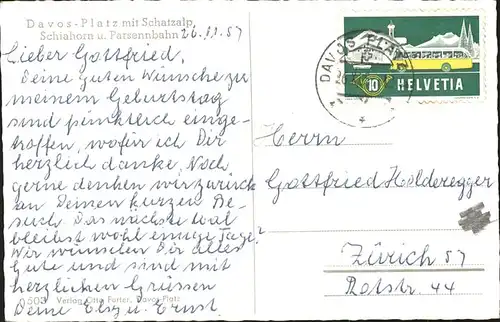 Davos-Platz mit Schatzalp,
Schiahorn u. Parsennbahn
26.11.57
Lieber Gottfried,
Deine guten Wünsche zu
meinem Geburtstag
sind pünktlich einge-
troffen, wofür ich Dir
herzlich danke. Noch
gerne denken wir zurück
an Deinen kurzen Be-
such. Das nächste Mal
bleibst wohl einige Tage?
Wir wünschen Dir alles
Gute und sind mit
herzlichen Grüssen
Deine Elsy u. Ernst.
Verlag Otto Furter, Davos-Platz
DAVOS PLATZ
10
HELVETIA
Herrn
Gottfried Holderegger
Zürich 57
Rotstr. 44